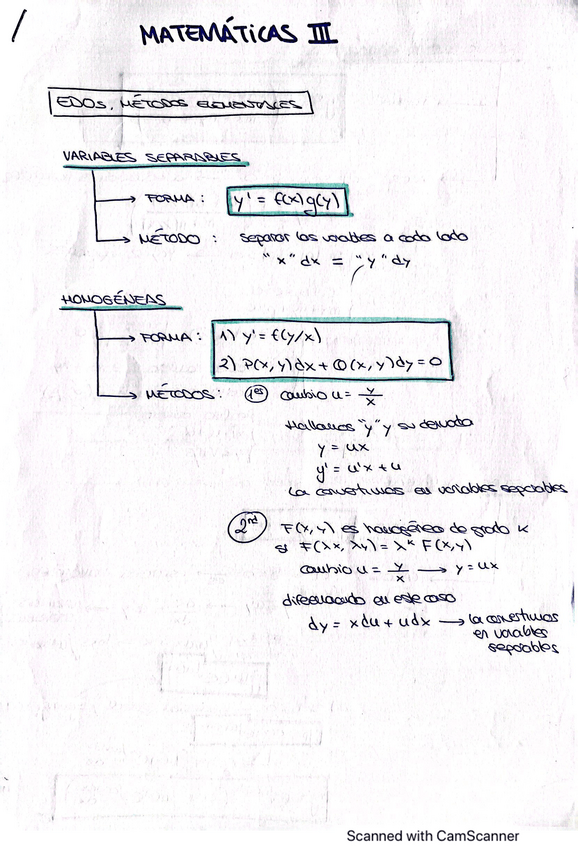 1
MATEMÁTICAS III
EDOs. MÉTODOS ELEMENTALES
VARIABLES SEPARABLES
→ FORMA : y' = f(x)g(y)
→ MÉTODO : separar las variables a cada lado
"x" dx = "y" dy
HOMOGÉNEAS
→ FORMA : 1) y' = f(y/x)
2) P(x,y)dx + Q(x,y)dy = 0
→ MÉTODOS : 1er cambio u = y/x
Hallamos "y" y su derivada
y = ux
y' = u'x + u
La convertimos en variables separables
2nd F(x,y) es homogénea de grado k
si F(λx, λy) = λ^k F(x,y)
cambio u = y/x → y = ux
diferenciando en este caso
dy = xdu + udx → la convertimos
en variables
separables
Scanned with CamScanner